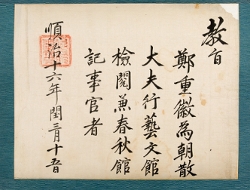 教旨
鄭重徽為朝散
大夫行藝文館
檢閱兼春秋館
記事官者
順治十六年閏三月十五日